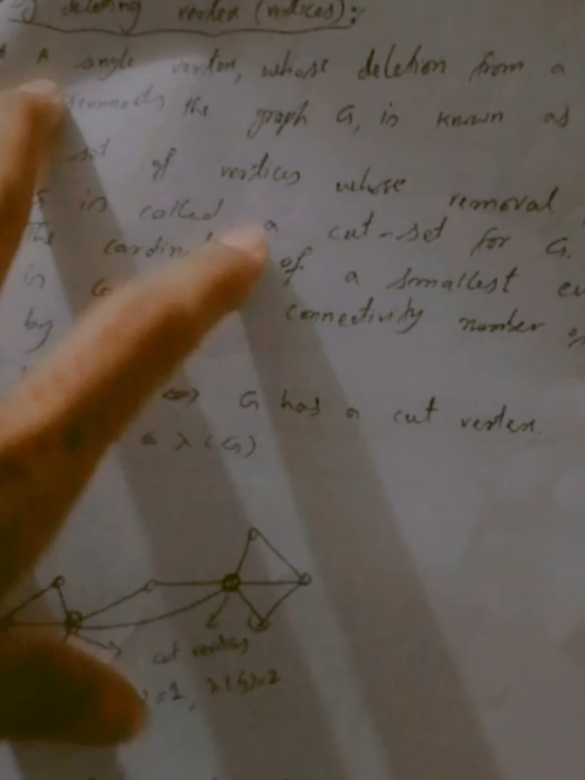 deleting vertex (vertices):
A single vertex, whose deletion from a
the graph G, is known as
set of vertices whose removal
is called a cut-set for G.
The of a smallest
by connectivity number of
<=> G has a cut vertex.
≤ λ(G)
cut vertices
=1, λ(G)=2